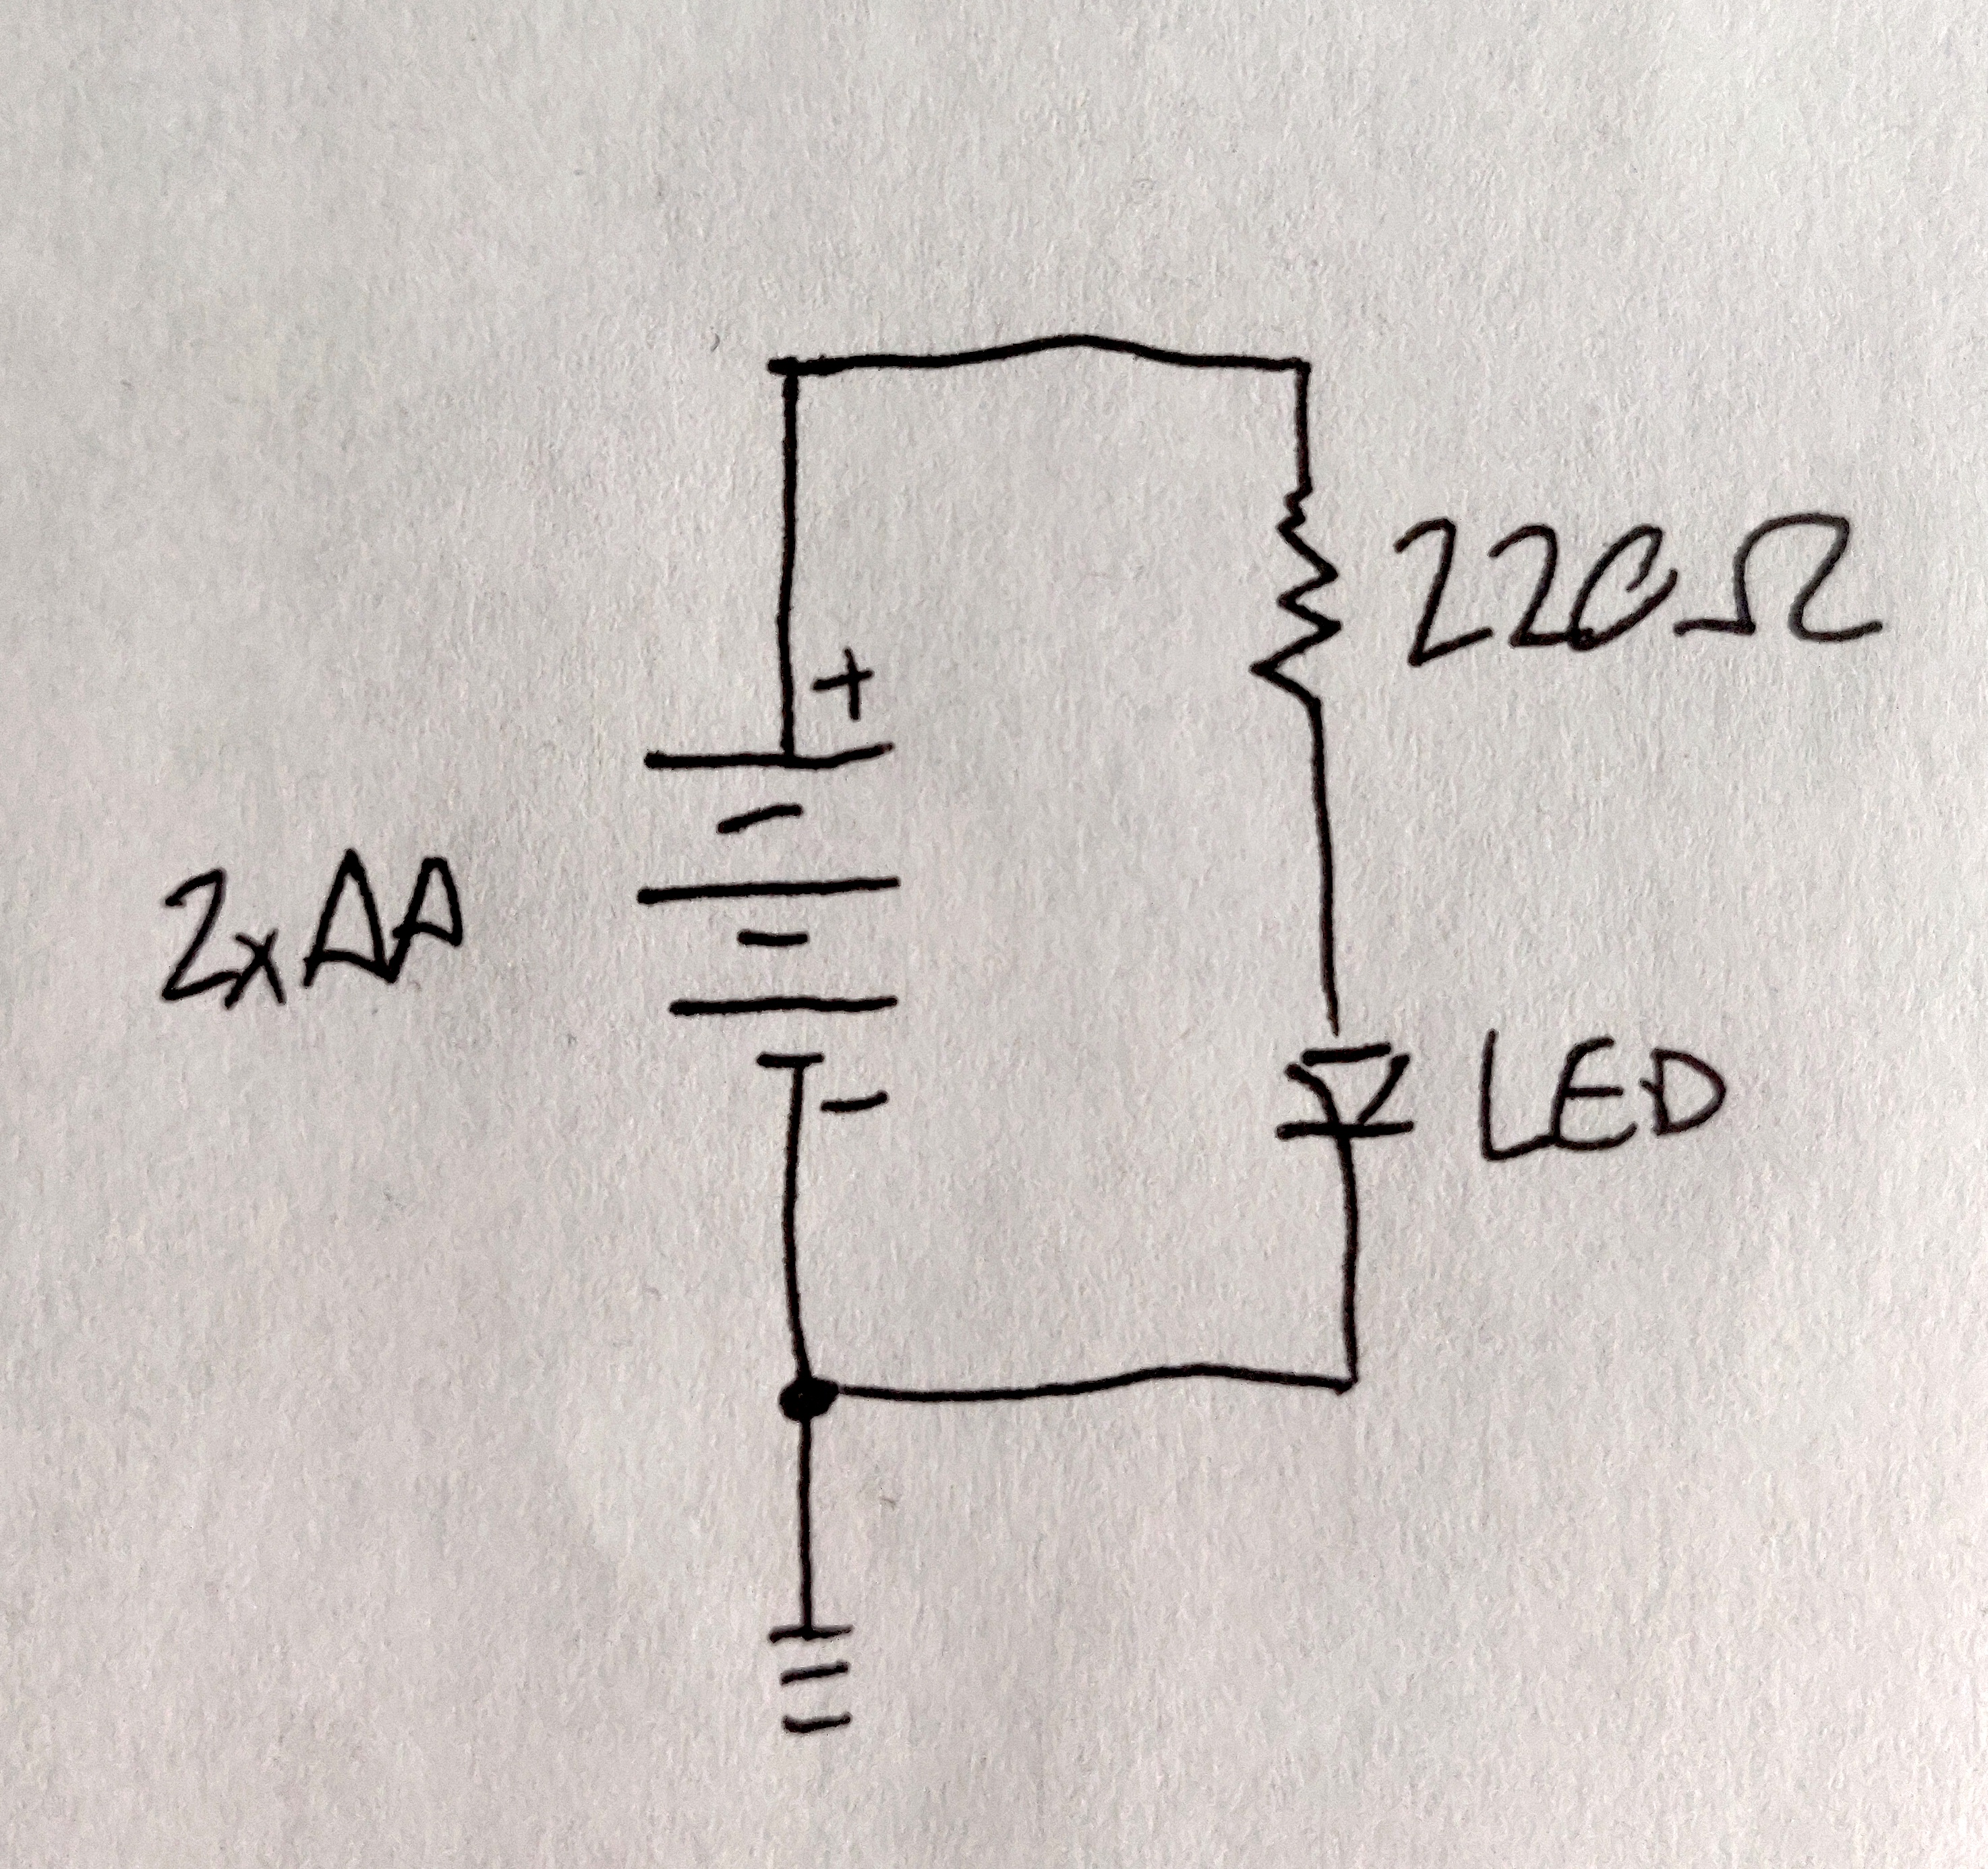 +
220Ω
2xAA
-
LED